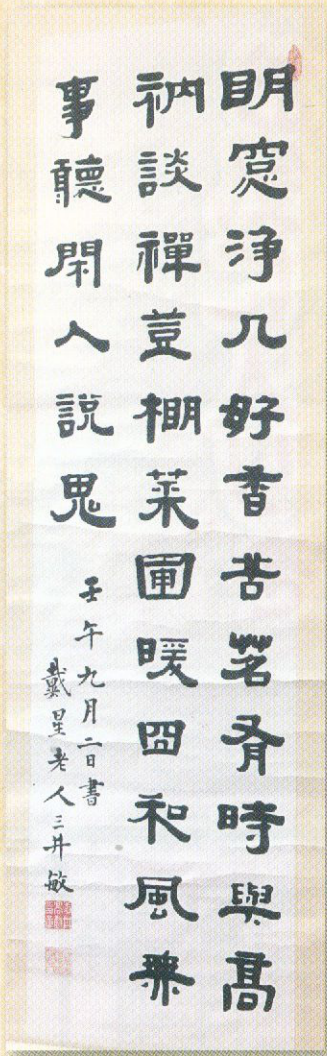 明窓淨几好香苦茗有時與高
衲談禪荳棚菜圃暖日和風無
事聽閑人說鬼
壬午九月二日書
戴星老人三井敏